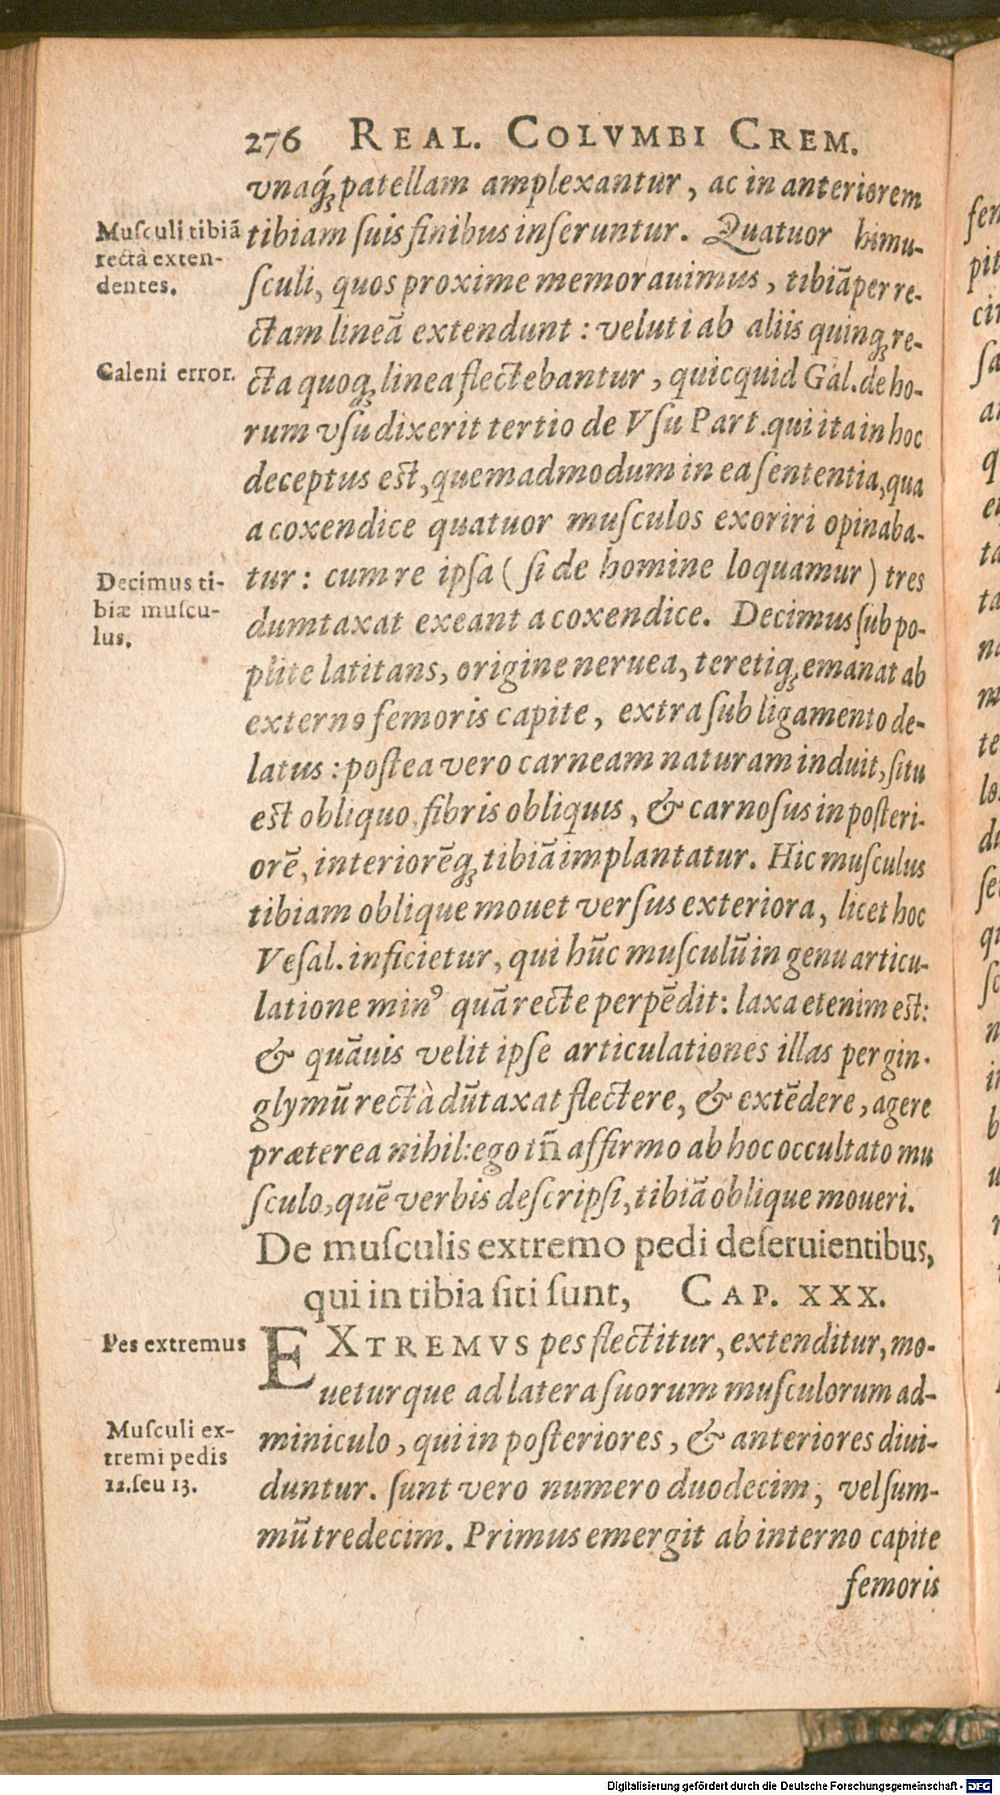 276 REAL. COLVMBI CREM.
vnaq́ꝫ patellam amplexantur, ac in anteriorem
Muſculi tibiã
rectã exten-
dentes.
tibiam ſuis finibus inſeruntur. Quatuor himu-
ſculi, quos proxime memorauimus, tibiã per re-
ctam lineã extendunt: veluti ab aliis quinqꝫ re-
Galeni error.
cta quoqꝫ linea flectebantur, quicquid Gal. de ho-
rum vſu dixerit tertio de Vſu Part. qui ita in hoc
deceptus eſt, quemadmodum in ea ſententia, qua
a coxendice quatuor muſculos exoriri opinaba-
Decimus ti-
biæ muſcu-
lus.
tur: cum re ipſa (ſi de homine loquamur) tres
dumtaxat exeant a coxendice. Decimus ſub po-
plite latitans, origine neruea, teretiqꝫ emanat ab
externo femoris capite, extra ſub ligamento de-
latus: poſtea vero carneam naturam induit, ſitu
eſt obliquo fibris obliquis, & carnoſus in poſteri-
orẽ, interiorẽqꝫ tibiã implantatur. Hic muſculus
tibiam oblique mouet verſus exteriora, licet hoc
Veſal. inficietur, qui hũc muſculũ in genu articu-
latione minꝰ quã recte perpẽdit: laxa etenim eſt:
& quãuis velit ipſe articulationes illas per gin-
glymũ rectà dũtaxat flectere, & extẽdere, agere
præterea nihil: ego tñ affirmo ab hoc occultato mu
ſculo, quẽ verbis deſcripſi, tibiã oblique moueri.
De muſculis extremo pedi deſeruientibus,
qui in tibia ſiti ſunt, CAP. XXX.
Pes extremus
EXTREMVS pes flectitur, extenditur, mo-
ueturque ad latera ſuorum muſculorum ad-
Muſculi ex-
tremi pedis
12. ſeu 13.
miniculo, qui in poſteriores, & anteriores diui-
duntur. ſunt vero numero duodecim, vel ſum-
mũ tredecim. Primus emergit ab interno capite
femoris
Digitalisierung gefördert durch die Deutsche Forschungsgemeinschaft - DFG